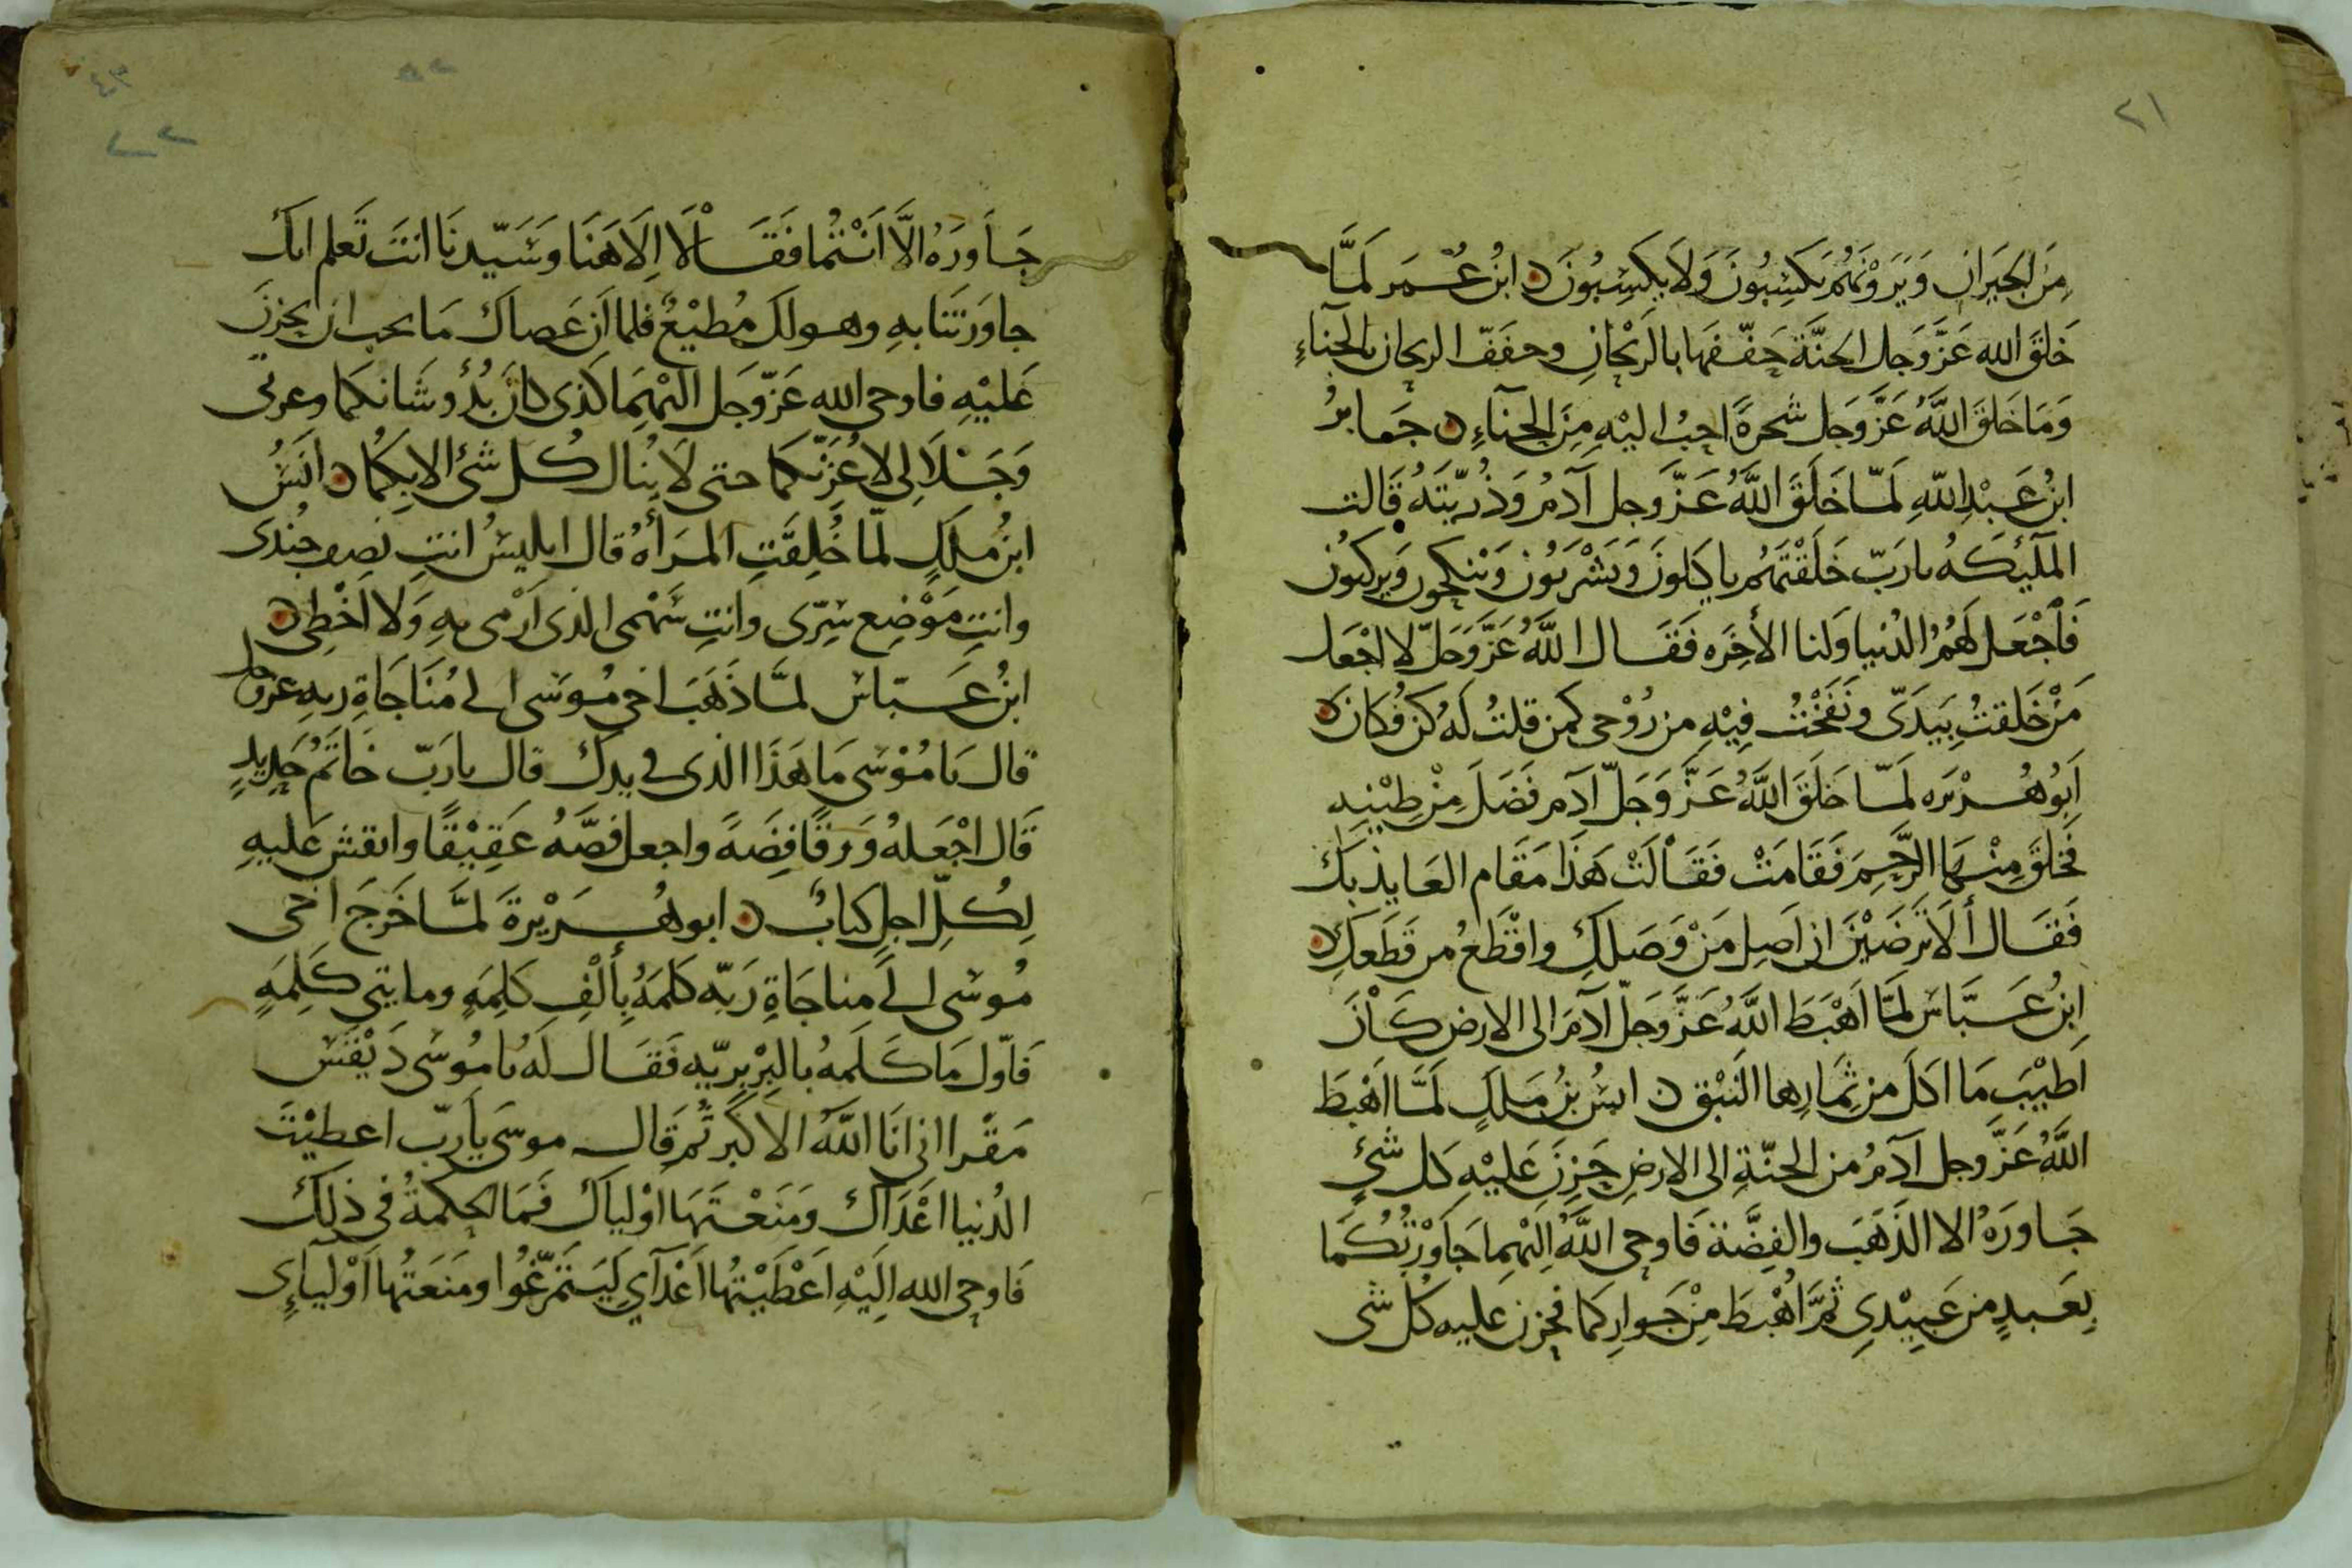 ٢١
مِنَ الجَيَرانِ وَيَرَوْنَهُمْ يَكسِبُونَ وَلَا يَكسِبُونَ ن ابنُ عُمَر لَمَّا
خَلقَ الله عَزَّ وَجَل الجنَّة حَفّفَها بالرَيْحَانِ وحفَفَ الريحان بالحِنَاءِ
وَمَا خَلَقَ اللَّهُ عَزَّ وَجَل شجرةً احبُ اليْهِ مِنَ الحِنَآءِ ن جَابِرُ
ابنُ عَبْدِ اللّهِ لَمّا خَلَقَ اللَّهُ عَزَّ وجل آدمُ وَذُرّيّتَهُ قَالت
المَلَيْكَهُ يارَبّ خَلَقْتَهُم ياكلونَ وَيَشْرَبُون وَيَنْكِحُون وَيركَبُون
فَاجْعَل لَهُمُ الدُنيا وَلنا الأخِرَه فَقَال اللَّهُ عَزَّ وَجَلّ لا اجْعَل
مَنْ خَلقتُ بِيَدَيّ ونَفَخْتُ فِيْهِ من رُوْحى كمن قلتُ لَهُ كن فُكانَ ن
اَبُو هُرْيَره لَمّا خَلَقَ اللَّهُ عَزَّ وَجَلّ آدَم فَضَلَ مِنْ طِيْنِهِ
فَخَلَقَ مِنْهَا الرَّحِمَ فَقَامَتْ فَقَالَتْ هَذَا مَقَام العَايذ بَكَ
فَقَال أَلَا تَرضَيْنَ ان اَصِل مَنْ وَصَلكِ واقْطَعُ من قَطَعَكِ ن
اِبنُ عَبَّاس لَمَّا اَهْبَطَ اللَّهُ عَزَّ وَجَلّ آدَمَ الى الارض كَانَ
اَطيْبَ مَا اكلَ من ثِمَارِها النَبْق ن انسُ بْنُ مَلكٍ لَمَّا اَهْبَطَ
اللَّهُ عَزَّ وجل آدَمُ من الجنّةِ الى الارضِ حَزِنَ عَليْهِ كل شئٍ
جَاوَرَهُ الا الذَهَبَ والفِضَّة فَاوحى اللَّهُ اِليْهِمَا جَاوَرْتُكُمَا
بِعَبدٍ من عَبِيْدِي ثمَّ اَهْبَطَ مِنْ جَوارِكمَا فحَزن عَليه كُل شى
جَاوَرَهُ الَّا اَنْتُمَا فَقَالَا اِلَاهَنَا وَسَيّدنَا انتَ تَعلم انك
جاوَرتَنَا بهِ وهو لكَ مُطيْعٌ فلما اَن عَصاكَ مَا نحب ان نحزنَ
عَليْهِ فاوحى الله عَزّ وَجَل اليْهِمَا كذى كان بُدُؤ شَانكمَا وعزتي
وَجَلَالِي لاعُزِّنكما حتى لَا يُنال كُل شئ الا بِكُمَا ن اَنَسُ
ابنُ ملكٍ لمّا خُلِقَتِ المرَأهُ قال ابليسُ انتِ نصِف جُندى
وانتِ مَوْضِع سِرّى وانتِ سَهْمى الذى اَرْمى بهِ وَلَا اَخْطِى ن
ابنُ عَبّاس لمَّا ذَهَبَ اخى مُوسَى الى مُنَاجَاةِ ربهِ عز وجل
قال يَامُوْسَى مَا هَذَا الذى في يدك قال يارَبّ خَاتَمُ حَدِيدٍ
قَال اجْعَلهُ وَرقًا فِضَهً واجعل فصَّهُ عَقِيْقًا وانقش عَليهِ
لِكُلّ اجلٍ كتابٌ ن ابو هُرَيْرةَ لمَّا خَرَجَ اخى
مُوسَى الى مناجَاةِ رَبّه كَلمَهُ بِأَلْفِ كَلِمَهٍ ومايتي كَلِمَهٍ
فَاوّل مَا كَلمَهُ بالبِرْبِرِيّهِ فَقَال لَهُ يَامُوسَى دَيْقَنَس
مَقْرا اني انَا اللَّهُ الاكبر ثُم قَال موسَى يارَبّ اعطيْتَ
الدُنيا اعْدَآكَ ومَنَعْتَهَا اوْلياكَ فَمَا الحكمةُ في ذلِكَ
فَاوحى الله اِليْهِ اعْطَيْتُها اعْدَآي لِيَتَمَرّغُوا ومنَعَتُها اوْليآءِى